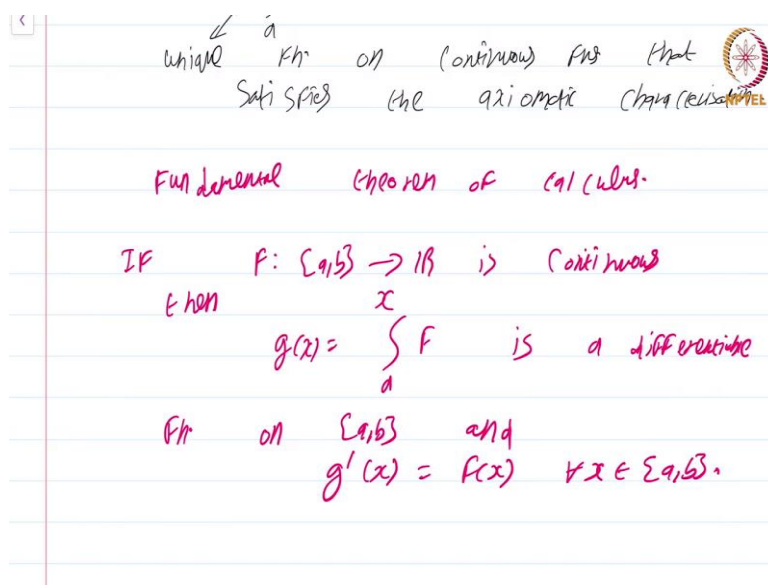 a
unique Fn. on Continuous Fns that
Satisfies the axiomatic characterisation
NPTEL
Fundamental theorem of calculus.
IF F: [a,b] → ℝ is Continuous
then
g(x) = ∫ₐˣ F is a differentiable
Fn. on [a,b] and
g'(x) = F(x) ∀x ∈ [a,b].